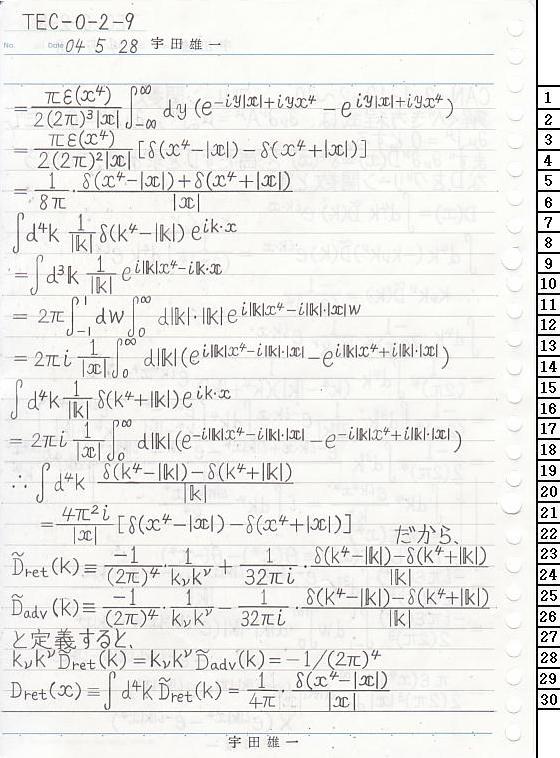 TEC-0-2-9
No. Date 04 5 28 宇田雄一
= πε(x⁴)/2(2π)³|𝕩| ∫_{-∞}^{∞} dy (e^{-iy|𝕩|+iyx⁴} - e^{iy|𝕩|+iyx⁴})
= πε(x⁴)/2(2π)²|𝕩| [δ(x⁴-|𝕩|) - δ(x⁴+|𝕩|)]
= 1/8π · δ(x⁴-|𝕩|)+δ(x⁴+|𝕩|)/|𝕩|
∫d⁴k 1/|𝕜| δ(k⁴-|𝕜|) e^{ik·x}
= ∫d³𝕜 1/|𝕜| e^{i|𝕜|x⁴-i𝕜·𝕩}
= 2π∫_{-1}^{1} dw ∫_{0}^{∞} d|𝕜|·|𝕜| e^{i|𝕜|x⁴-i|𝕜|·|𝕩|w}
= 2πi 1/|𝕩| ∫_{0}^{∞} d|𝕜| (e^{i|𝕜|x⁴-i|𝕜|·|𝕩|} - e^{i|𝕜|x⁴+i|𝕜|·|𝕩|})
∫d⁴k 1/|𝕜| δ(k⁴+|𝕜|) e^{ik·x}
= 2πi 1/|𝕩| ∫_{0}^{∞} d|𝕜| (e^{-i|𝕜|x⁴-i|𝕜|·|𝕩|} - e^{-i|𝕜|x⁴+i|𝕜|·|𝕩|})
∴ ∫d⁴k δ(k⁴-|𝕜|)-δ(k⁴+|𝕜|)/|𝕜|
= 4π²i/|𝕩| [δ(x⁴-|𝕩|) - δ(x⁴+|𝕩|)] だから、
D̃ret(k) ≡ -1/(2π)⁴ · 1/kᵥk^ν + 1/32πi · δ(k⁴-|𝕜|)-δ(k⁴+|𝕜|)/|𝕜|
D̃adv(k) ≡ -1/(2π)⁴ · 1/kᵥk^ν - 1/32πi · δ(k⁴-|𝕜|)-δ(k⁴+|𝕜|)/|𝕜|
と定義すると、
kᵥk^ν D̃ret(k) = kᵥk^ν D̃adv(k) = -1/(2π)⁴
Dret(x) ≡ ∫d⁴k D̃ret(k) = 1/4π · δ(x⁴-|𝕩|)/|𝕩|
宇田雄一
1
2
3
4
5
6
7
8
9
10
11
12
13
14
15
16
17
18
19
20
21
22
23
24
25
26
27
28
29
30